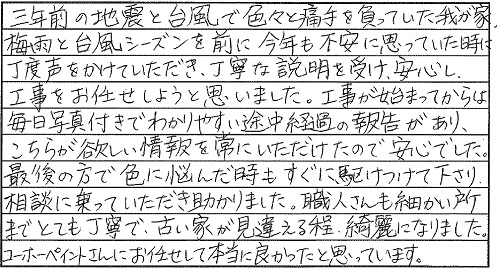 三年前の地震と台風で色々と痛手を負っていた我が家。
梅雨と台風シーズンを前に今年も不安に思っていた時に
丁度声をかけていただき、丁寧な説明を受け、安心し
工事をお任せしようと思いました。工事が始まってからは
毎日写真付きでわかりやすい途中経過の報告があり、
こちらが欲しい情報を常にいただけたので安心でした。
最後の方で色に悩んだ時もすぐに駆けつけて下さり、
相談に乗っていただき助かりました。職人さんも細かい所
までとても丁寧で、古い家が見違える程、綺麗になりました。
ユーホーペイントさんにお任せして本当に良かったと思っています。